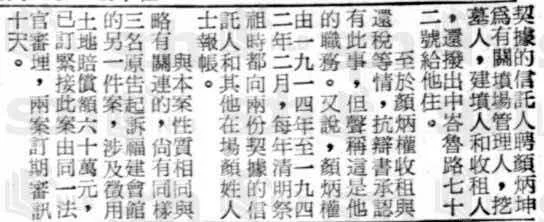 契據的信託人聘顏炳坤
爲有關墳場管理人，挖
墓人，建墳人和收租人
，還撥出中峇魯路七十
二號給他住。
至於顏炳權收租與
還稅等情，抗辯書承認
有此事，但聲稱這是他
的職務。又說，顏炳權
由一九一四年至一九四
二年二月，每年清明祭
祖時都向兩份契據的信
託人和其他在場顏姓人
士報帳。
與本案性質相同與
略有關連的，尙有同樣
三名原告起訴福建會館
的另一件案，涉及徵用
土地賠償額六十萬元，
已訂緊接此案由同一法
官審理，兩案訂期審訊
十天。